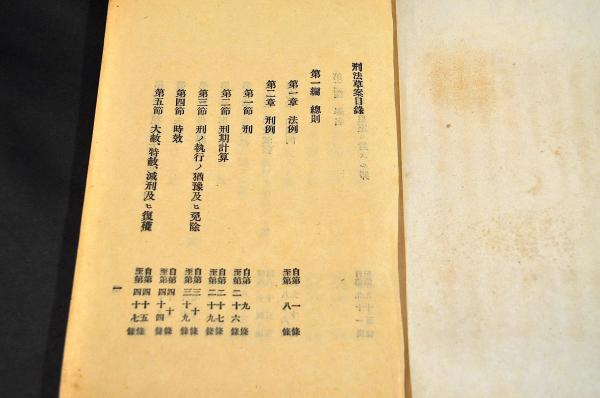 刑法草案目錄
第一編 總則
第一章 法例
自第一條
至第八條
第二章 刑例
第一節 刑
自第九條
至第二十六條
第二節 刑期計算
自第二十七條
至第二十九條
第三節 刑ノ執行ノ猶豫及ヒ免除
自第三十條
至第三十九條
第四節 時效
自第四十條
至第四十四條
第五節 大赦、特赦、減刑及ヒ復權
自第四十五條
至第四十七條
一